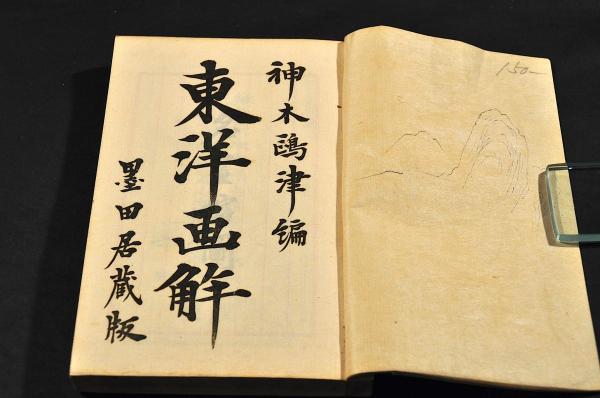 神木鴎津编
東洋画解
墨田居蔵版
150-